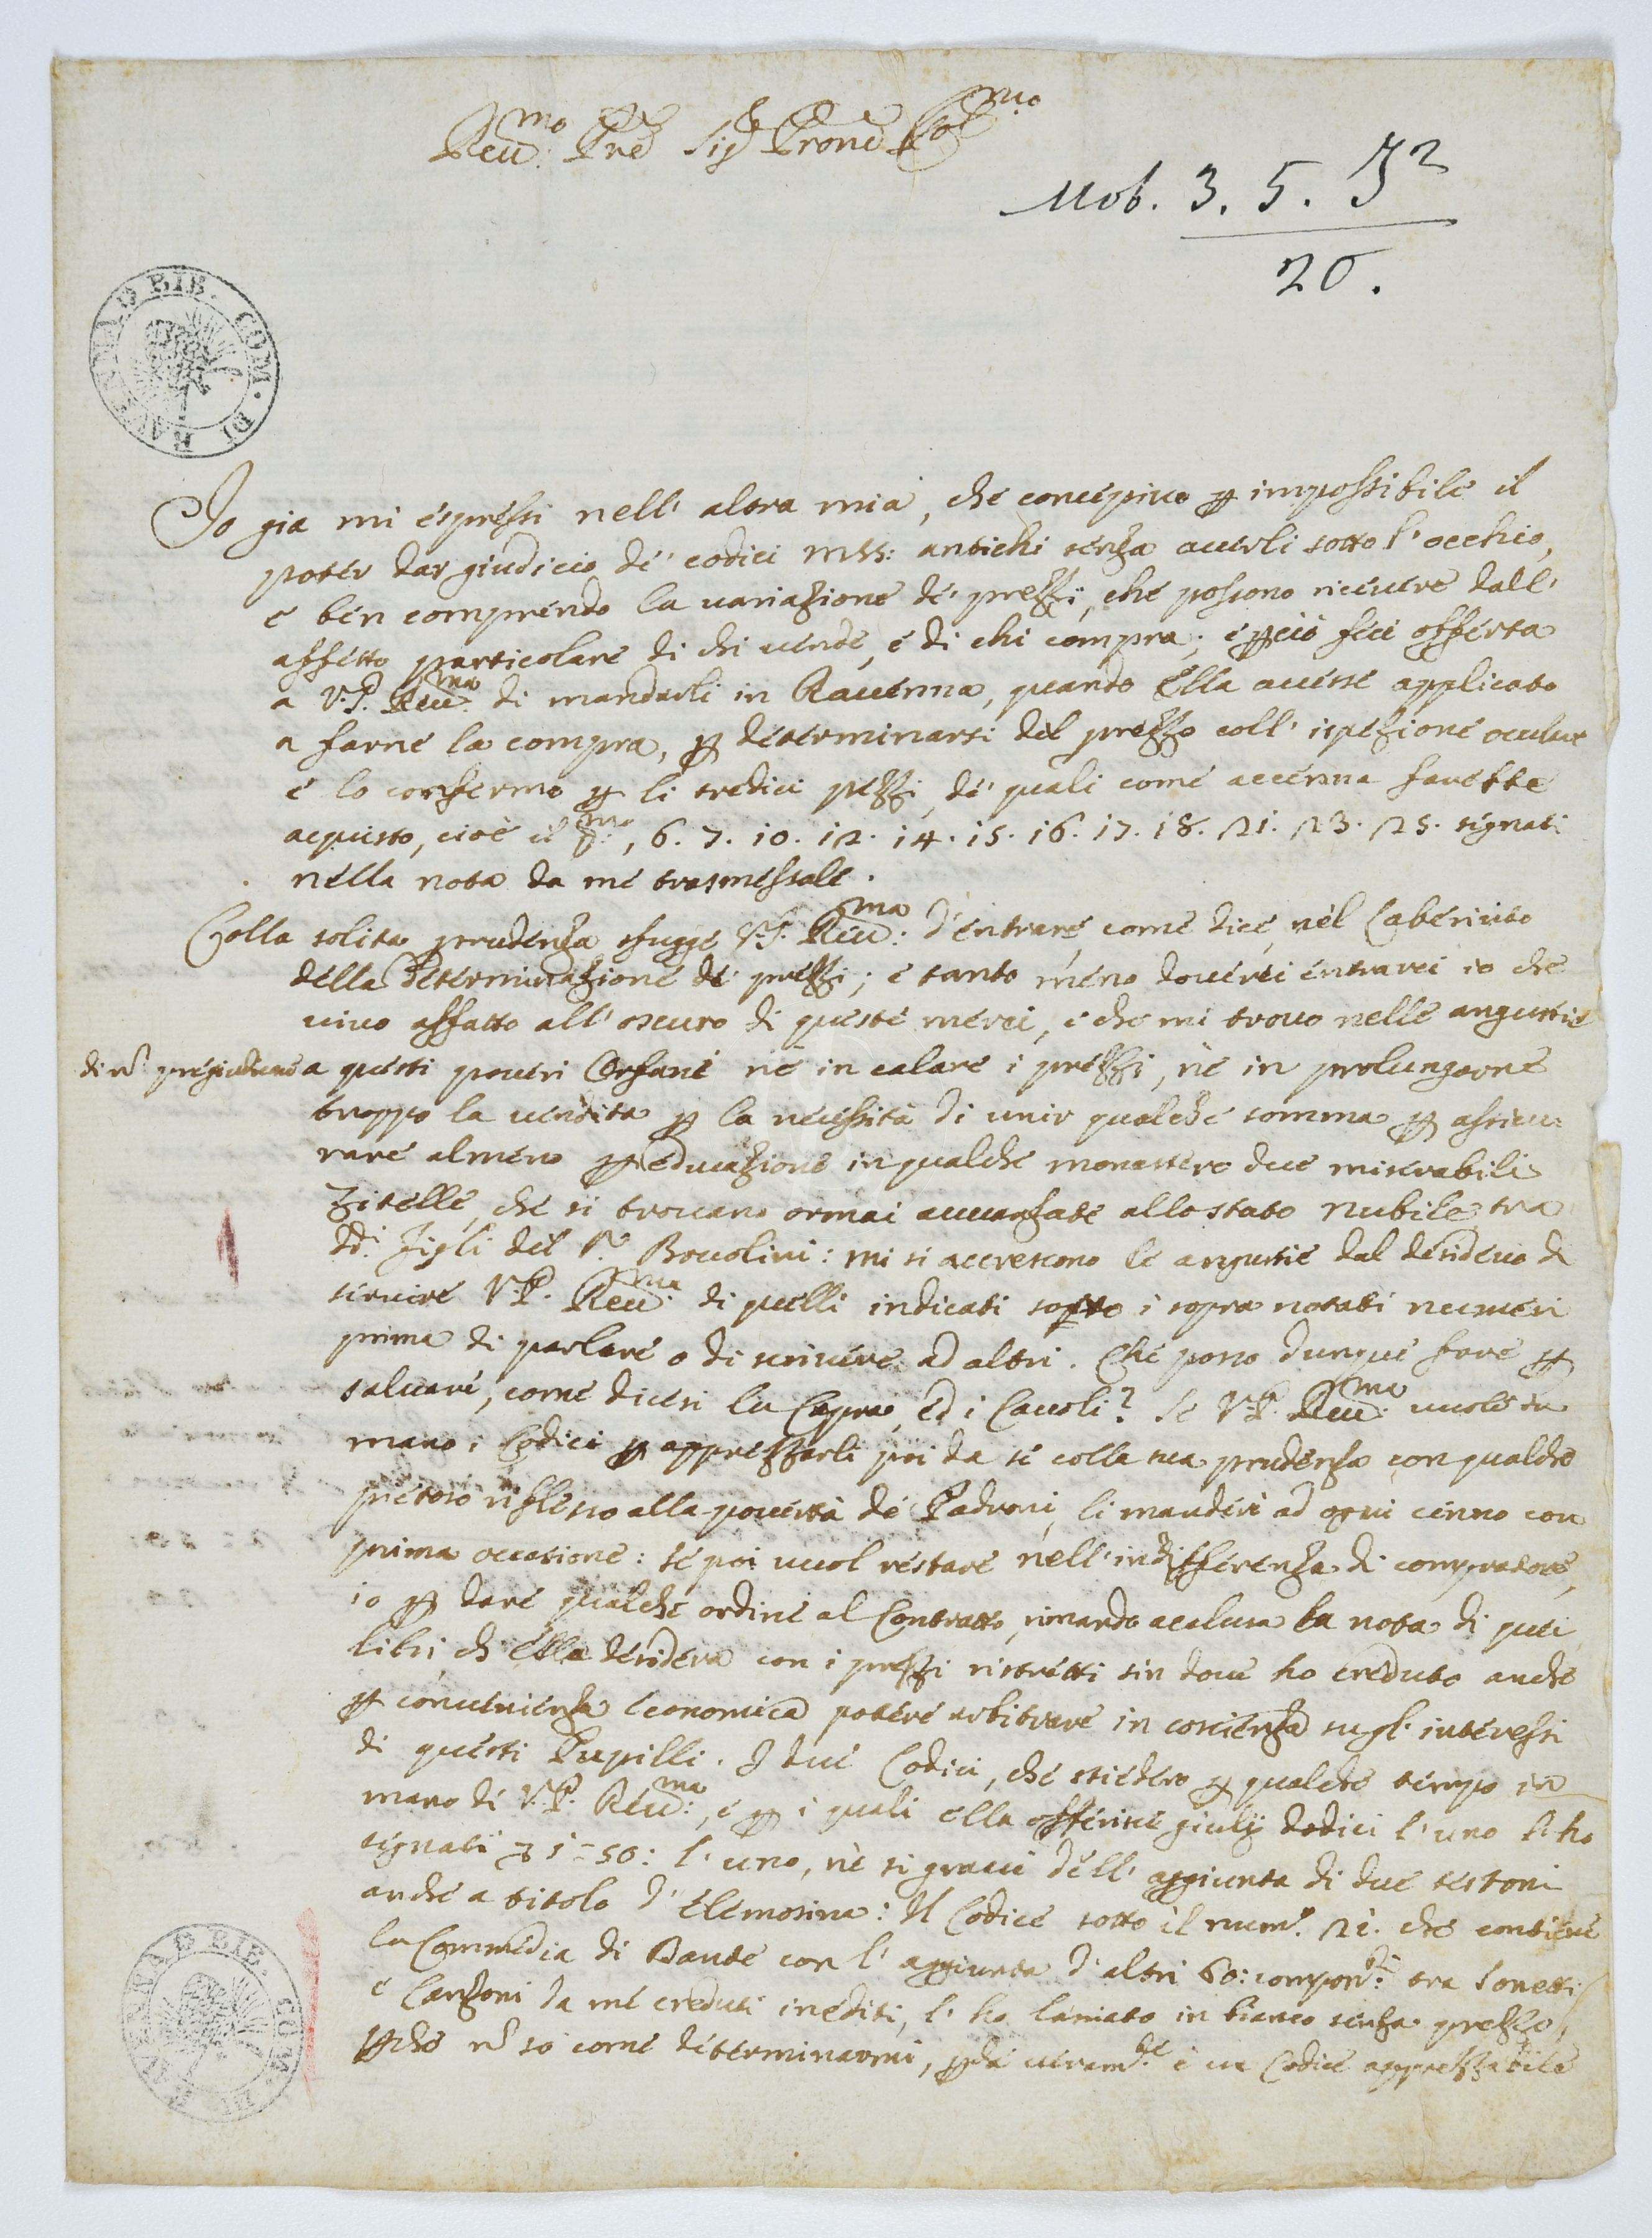 Reu:mo Pre Sigr Prone Colmo
Mob. 3. 5. I2
20.
BIB. COM. DI RAVENNA
Io gia mi espressi nell' altra mia, che concepiuo p impossibile il
poter dar giudicio de' codici mss: antichi senza auerli sotto l' occhio,
e ben comprendo la uariazione de' prezzi, che possono riceuere dall'
affetto particolare di chi uende, e di chi compra; e pciò feci offerta
a V.P. Reu:ma di mandarli in Rauenna, quando Ella auesse applicato
a farne la compra, p determinarsi del prezzo coll' ispezione oculare
e lo confermo p li tredici pezzi, de' quali come accenna farebbe
acquisto, cioè il p:mo, 6. 7. 10. 12. 14. 15. 16. 17. 18. 21. 23. 25. segnati
nella nota da me trasmessale.
Colla solita prudenza sfugge V.P. Reu:ma d'entrare, come dice, nel Laberinto
della determinazione de' prezzi; e tanto meno douerei entrarci io che
uiuo affatto all' oscuro di queste merci, e che mi trouo nelle angustie
di n pregiudicare a questi poueri Orfani nè in calare i prezzi, nè in prolungarne
troppo la uendita p la necessità di unir qualche somma p assicu:
rare almeno p educazione in qualche monastero due miserabili
Zitelle, che si trouano ormai auuanzate allo stato nubile tra
dd:i Figli del Sr Bouolini: mi si accrescono le angustie dal desiderio di
seruire V.P. Reu:ma di quelli indicati sotto i sopra notati numeri
prima di parlare o di scriuere ad altri. Che posso dunque fare p
saluare, come dicesi la Capra, ed i Cauoli? Se V.P. Reu:ma uuole in
mano i Codici p apprezzarli poi da se colla sua prudenza con qualche
pietoso riflesso alla pouertà de' Padroni, li manderò ad ogni cenno con
prima occasione: se poi uuol restare nell' indifferenza di compratore,
io p dare qualche ordine al Contratto, rimando acclusa la nota di quei
libri ch' Ella desidera con i prezzi ristretti sin doue ho creduto anche
p conuenienza economica potere arbitrare in coscienza sugl' interessi
di questi Pupilli. I due Codici, che stiedero p qualche tempo in
mano di V.P. Reu:ma, e p i quali ella offerisce giulij dodici l' uno l' ho
segnati 1=50: l' uno, nè si graui dell' aggiunta di due testoni
anche a titolo d' Elemosina: Il Codice sotto il num.o 21. che contiene
la Commedia di Dante con l' aggiunta d' altri 60: compon:ti tra Sonetti
e Canzoni da me creduti inediti, l' ho lasciato in bianco senza prezzo,
pche n so come determinarmi, pche ueram:te è un Codice apprezzabile
BIB. COM. DI RAVENNA